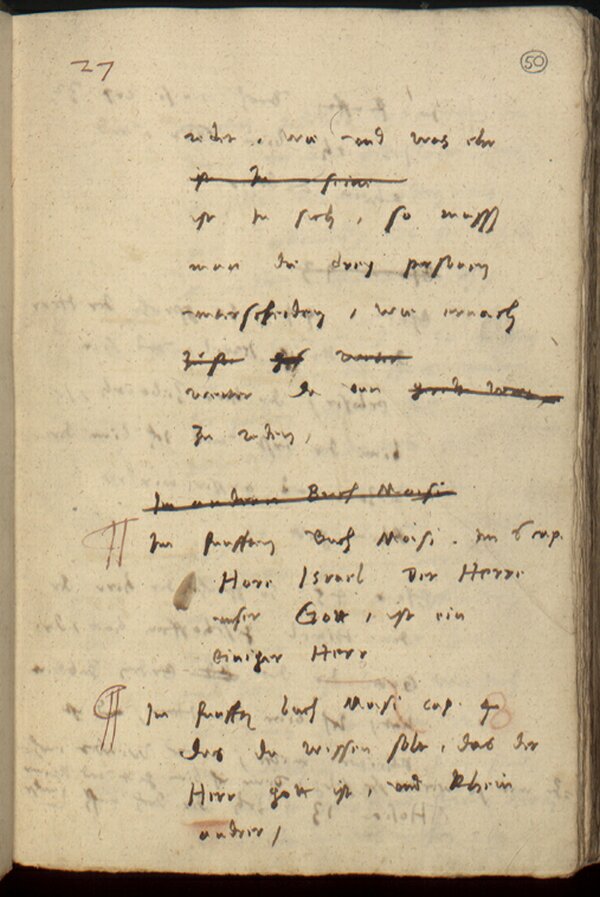 27
50
reden, wie und was ehr
ist in seine
ist in sich, so muss
man die drey personen
unterscheiden, wie ernach
weiter
weiter da von
zu reden,
Im andren Buch Moisi
Im funfften Buch Moisi. Im 6 cap.
Höre Israel Der Herre
unser Gott, ist ein
einiger Herr
Im funfften buch Moisi cap. 4
das du wissen solt, das der
Herr gott ist, und khein
andrer,